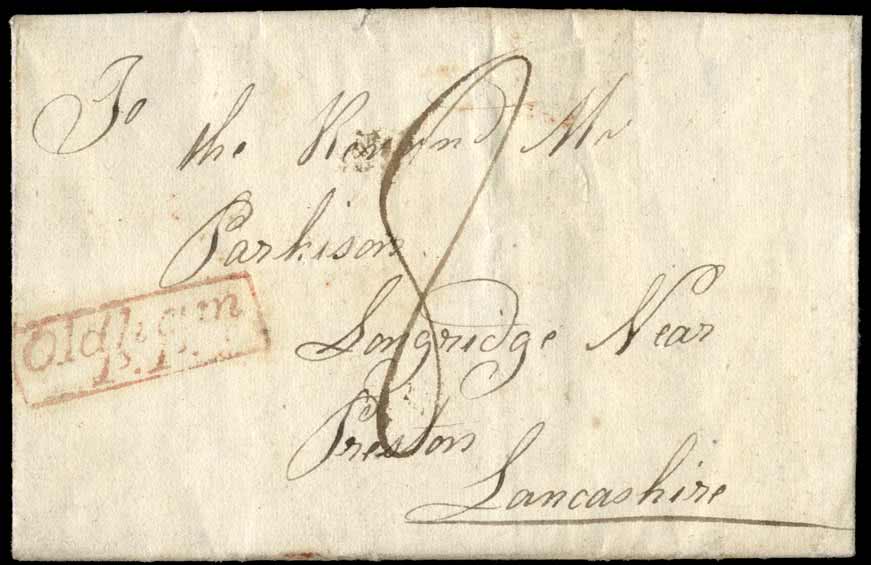 To
the Revnd Mr
Parkison
8
Oldham
P.P.
Longridge Near
Preston
Lancashire